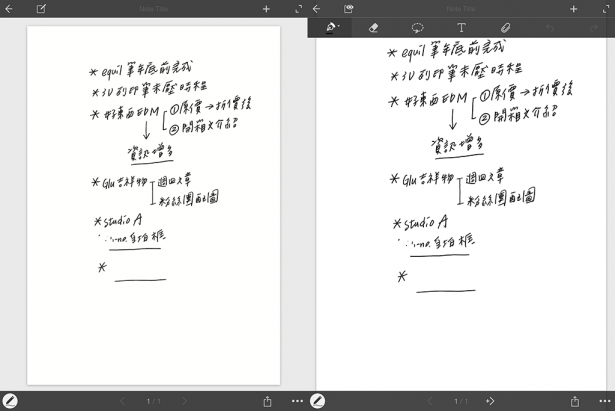 Note Title
* equil 筆年底前完成
* 3U列印筆未壓時程
* 好東西EDM ①原價→折價後
②開箱文介紹
資訊增多
* Glu吉祥物 週四文章
粉絲團配圖
* studio A
*
1/1
Note Title
T
* equil 筆年底前完成
* 3U列印筆未壓時程
* 好東西EDM ①原價→折價後
②開箱文介紹
資訊增多
* Glu吉祥物 週四文章
粉絲團配圖
* studio A
*
1/1